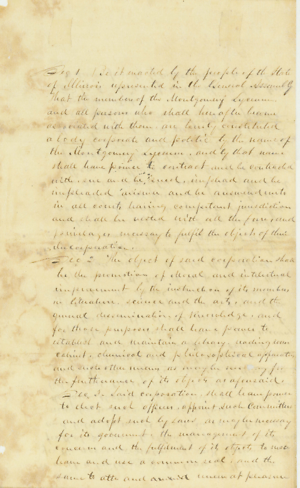 Sec 1. Be it enacted by the people of the State
of Illinois represented in the General Assembly
that the members of the Montgomery Lyceum
and all persons who shall hereafter become
associated with them are hereby constituted
a body corporate and politic by the name of
the Montgomery Lyceum, and by that name
shall have power to contract and be contracted
with, sue and be sued, implead and be
impleaded answer and be
in all courts having competent jurisdiction
and shall be vested with all the
necessary to fulfil the objects of their
incorporation.
Sec 2. The object of said corporation shall
be the promotion of and intellectual
improvement by the instruction of its members
in literature, science and the arts, and the
general dissemination of knowledge, and
for those purposes shall have power to
establish and maintain a library, reading room
cabinet, chemical and philosophical apparatus
and such other means as may be necessary for
the furtherance of its objects as aforesaid.
Sec 3. Said corporation shall have power
to elect such officers, appoint such Committees
and adopt such by laws as may be necessary
for its government the management of its
concerns and the fulfilment of its objects to
have and use a common seal, and the
same to alter and at pleasure